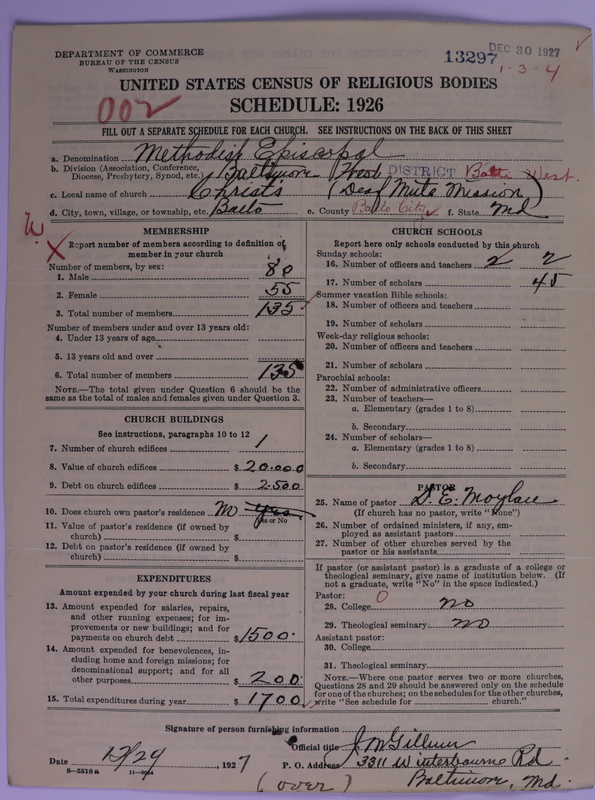 DEPARTMENT OF COMMERCE
BUREAU OF THE CENSUS
WASHINGTON
13297 DEC 30 1927
1-3-4
UNITED STATES CENSUS OF RELIGIOUS BODIES
SCHEDULE: 1926
002
FILL OUT A SEPARATE SCHEDULE FOR EACH CHURCH. SEE INSTRUCTIONS ON THE BACK OF THIS SHEET
a. Denomination Methodist Episcopal
b. Division (Association, Conference, Diocese, Presbytery, Synod, etc.) Baltimore West DISTRICT Balti West.
c. Local name of church Christs (Deaf Mute Mission)
d. City, town, village, or township, etc. Balto e. County Balto City f. State Md
W.
X
MEMBERSHIP
Report number of members according to definition of
member in your church
Number of members, by sex:
1. Male 80
2. Female 55
3. Total number of members 135
Number of members under and over 13 years old:
4. Under 13 years of age
5. 13 years old and over
6. Total number of members 135
NOTE.—The total given under Question 6 should be
same as the total of males and females given under Question 3.
CHURCH BUILDINGS
See instructions, paragraphs 10 to 12
7. Number of church edifices 1
8. Value of church edifices $ 20.000
9. Debt on church edifices $ 2.500
10. Does church own pastor's residence no Yes
Yes or No
11. Value of pastor's residence (if owned by
church) $
12. Debt on pastor's residence (if owned by
church) $
EXPENDITURES
Amount expended by your church during last fiscal year
13. Amount expended for salaries, repairs,
and other running expenses; for im-
provements or new buildings; and for
payments on church debt $ 1500.
14. Amount expended for benevolences, in-
cluding home and foreign missions; for
denominational support; and for all
other purposes $ 200
15. Total expenditures during year $ 1700
CHURCH SCHOOLS
Report here only schools conducted by this church
Sunday schools:
16. Number of officers and teachers 2 2
17. Number of scholars 45
Summer vacation Bible schools:
18. Number of officers and teachers
19. Number of scholars
Week-day religious schools:
20. Number of officers and teachers
21. Number of scholars
Parochial schools:
22. Number of administrative officers
23. Number of teachers—
a. Elementary (grades 1 to 8)
b. Secondary
24. Number of scholars—
a. Elementary (grades 1 to 8)
b. Secondary
PASTOR
25. Name of pastor D. E. Moylan
(If church has no pastor, write "None")
26. Number of ordained ministers, if any, em-
ployed as assistant pastors
27. Number of other churches served by the
pastor or his assistants
If pastor (or assistant pastor) is a graduate of a college or
theological seminary, give name of institution below. (If
not a graduate, write "No" in the space indicated.)
Pastor: 0
28. College no
29. Theological seminary no
Assistant pastor:
30. College
31. Theological seminary
NOTE.—Where one pastor serves two or more churches,
Questions 28 and 29 should be answered only on the schedule
for one of the churches; on the schedules for the other churches,
write "See schedule for church."
Signature of person furnishing information
Official title
Date 12/29, 1927 P. O. Address 3311 Winterbourne Rd
8—5518a 11—9054
Baltimore, Md.
(over)